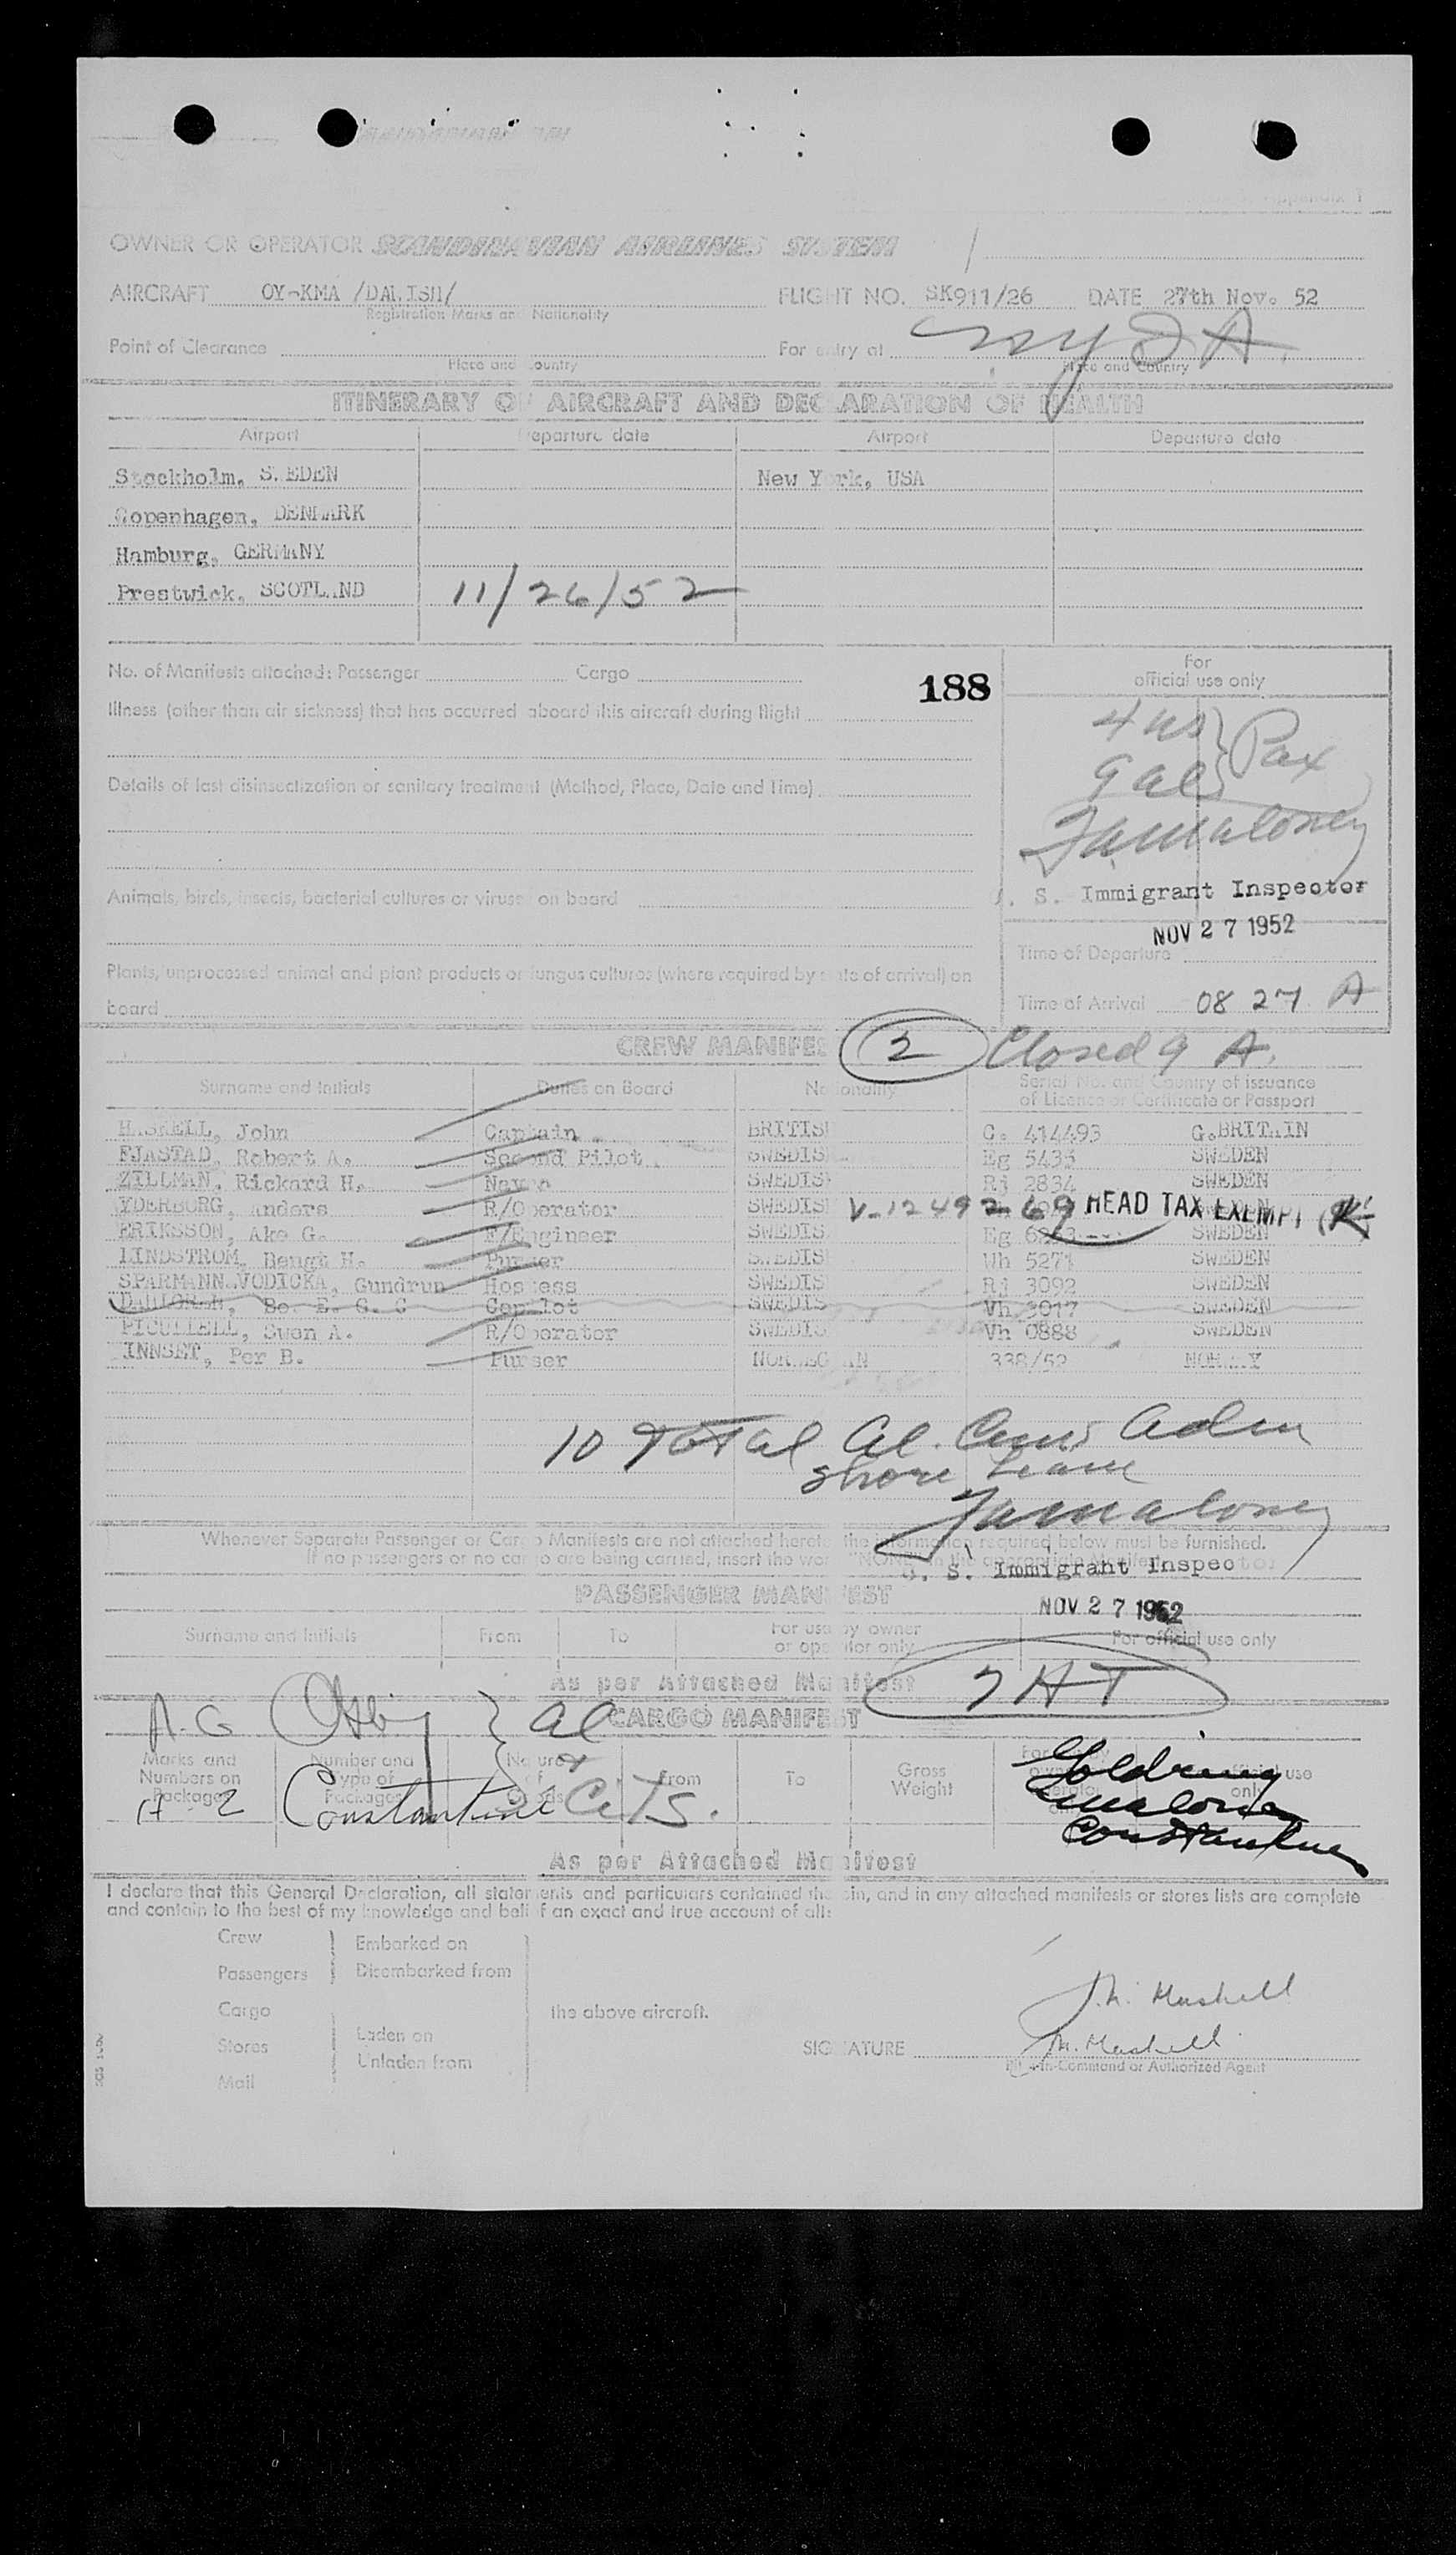 OWNER OR OPERATOR SCANDINAVIAN AIRLINES SYSTEM
AIRCRAFT OY-KMA /DANISH/ FLIGHT NO. SK911/26 DATE 27th Nov. 52
Registration Marks and Nationality
Point of Clearance For entry at
Place and Country Place and Country
ITINERARY OF AIRCRAFT AND DECLARATION OF HEALTH
Airport Departure date Airport Departure date
Stockholm, SWEDEN New York, USA
Copenhagen, DENMARK
Hamburg, GERMANY
Prestwick, SCOTLAND 11/26/52
No. of Manifests attached: Passenger Cargo
188
For official use only
Illness (other than air sickness) that has occurred aboard this aircraft during flight
4 US } Pax
9 al
Details of last disinsectization or sanitary treatment (Method, Place, Date and Time)
FA Maloney
Animals, birds, insects, bacterial cultures or viruses on board
U. S. Immigrant Inspector
NOV 27 1952
Time of Departure
Plants, unprocessed animal and plant products or fungus cultures (where required by state of arrival) on
board
Time of Arrival 08 27 A
CREW MANIFEST 2 Closed 9 A.
Surname and Initials Duties on Board Nationality Serial No. and Country of issuance
of Licence or Certificate or Passport
HASKELL, John Captain BRITISH G. 414493 G.BRITAIN
FJASTAD, Robert A. Second Pilot SWEDISH Eg 5433 SWEDEN
ZILLMAN, Rickard H. SWEDISH Rj 2834 SWEDEN
YDERBORG, Anders R/Operator SWEDISH V-1249269 HEAD TAX EXEMPT
ERIKSSON, Ake G. F/Engineer SWEDISH Eg SWEDEN
LINDSTROM, Bengt H. Purser SWEDISH Wh 5271 SWEDEN
SPARMANN VODICKA, Gundrun Hostess SWEDISH Rj 3092 SWEDEN
Bo. E. G. C SWEDISH Vh 3017 SWEDEN
Sven A. R/Operator SWEDISH Vh 0888 SWEDEN
INNSET, Per B. Purser NORWEGIAN 338/52 NORWAY
10 Total Al. Crew Adm
Shore Leave
FA Maloney
Whenever Separate Passenger or Cargo Manifests are not attached hereto the information required below must be furnished.
If no passengers or no cargo are being carried, insert the word "NONE" in the appropriate manifest
U. S. Immigrant Inspector
PASSENGER MANIFEST
NOV 27 1952
Surname and Initials From To For use by owner or operator only For official use only
As per Attached Manifest
2 HT
CARGO MANIFEST
Marks and Numbers on Packages Number and Type of Packages Nature of Goods From To Gross Weight
Constantine Cits.
Goldring
Maloney
Constantine
As per Attached Manifest
I declare that this General Declaration, all statements and particulars contained therein, and in any attached manifests or stores lists are complete
and contain to the best of my knowledge and belief an exact and true account of all:
Crew Embarked on
Passengers Disembarked from
Cargo the above aircraft.
Stores Laden on
Unladen from
Mail
J.M. Haskell
SIGNATURE M. Haskell
Pilot-in-Command or Authorized Agent